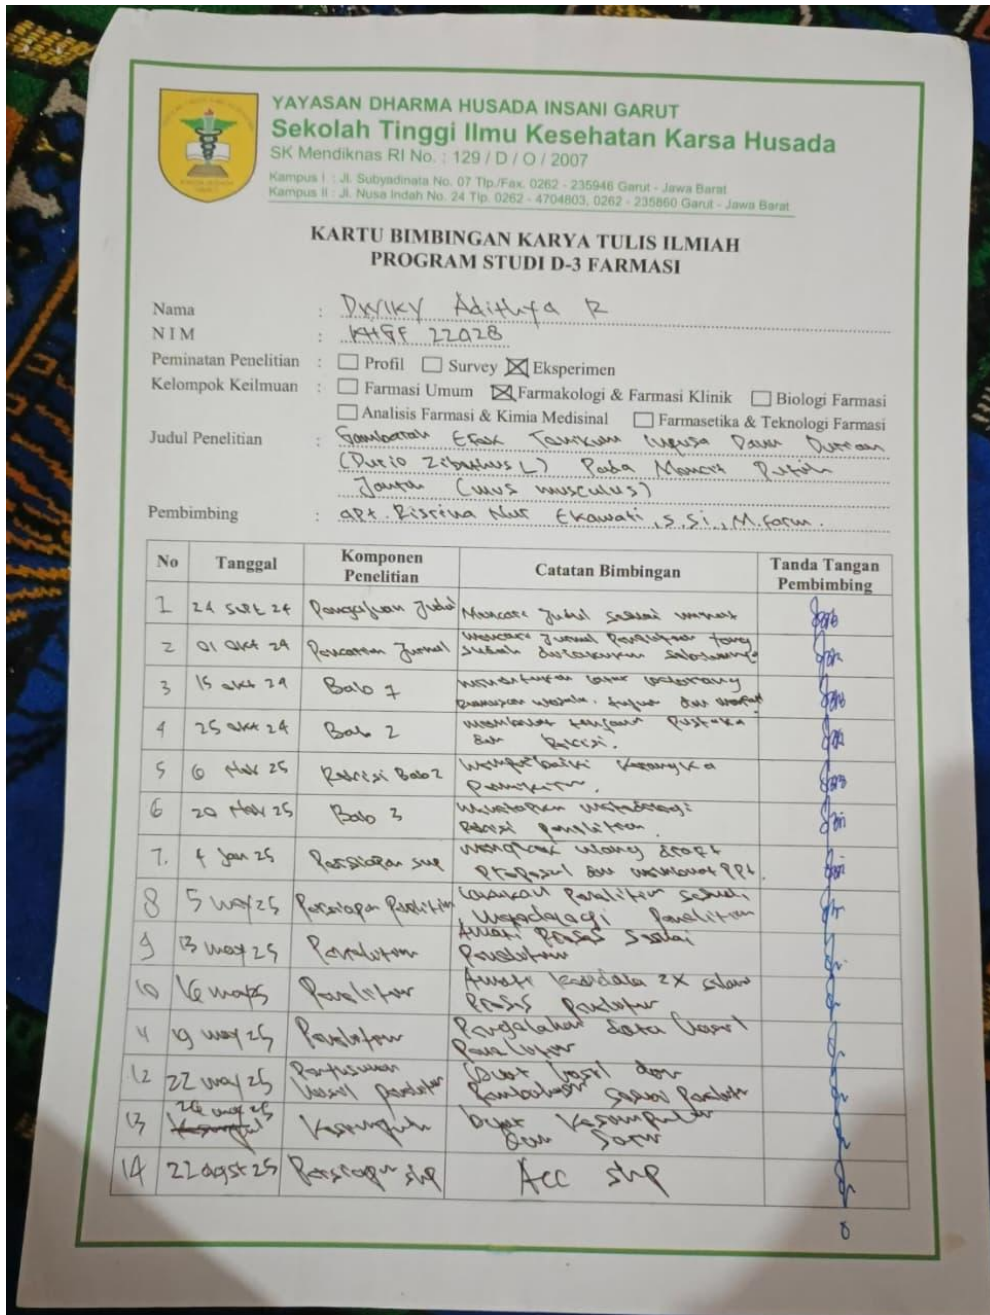 YAYASAN DHARMA HUSADA INSANI GARUT
Sekolah Tinggi Ilmu Kesehatan Karsa Husada
SK Mendiknas RI No. : 129 / D / O / 2007
Kampus I : Jl. Subyadinata No. 07 Tlp./Fax. 0262 - 235946 Garut - Jawa Barat
Kampus II : Jl. Nusa Indah No. 24 Tlp. 0262 - 4704803, 0262 - 235860 Garut - Jawa Barat
KARTU BIMBINGAN KARYA TULIS ILMIAH
PROGRAM STUDI D-3 FARMASI
Nama : Dwiky Adithya R
NIM : KHGF 22028
Peminatan Penelitian : Profil Survey Eksperimen
Kelompok Keilmuan : Farmasi Umum Farmakologi & Farmasi Klinik Biologi Farmasi
Analisis Farmasi & Kimia Medisinal Farmasetika & Teknologi Farmasi
Judul Penelitian : Gambaran Efek Daun Durian
(Durio Zibethus L) Pada Mencit Putih
Jantan (mus musculus)
Pembimbing : apt. Risrina Nur Ekawati, S.Si., M.Farm.
No Tanggal Komponen Penelitian Catatan Bimbingan Tanda Tangan Pembimbing
1 24 Sept 24 Pengajuan Judul Mencari Judul sesuai minat
2 01 Okt 24 Pencarian Jurnal Mencari Jurnal Penelitian yang
sudah dilakukan sebelumnya
3 15 Okt 24 Bab 1 latar belakang
masala, tujuan dan
4 25 Okt 24 Bab 2 membuat Pustaka
dan Revisi.
5 6 25 Revisi Bab 2 Memperbaiki Kerangka
Pemikiran.
6 20 25 Bab 3
Revisi penelitian.
7. 4 Jan 25 Persiapan sup ulang draft
Proposal dan membuat PPt.
8 5 may 25 Persiapan Penelitian Lakukan Penelitian sesuai
Metodologi Penelitian
9 13 may 25 Penelitian Amati Proses sesuai
Penelitian
10 16 Penelitian Amati 2x
Proses Penelitian
11 19 may 25 Penelitian Pengolahan data hasil
Penelitian
12 22 may 25 Penyusunan
hasil penelitian Buat hasil dan
Pembahasan sesuai
13 26 may 25 Kesimpulan buat Kesimpulan
dan Saran
14 22 agst 25 Persiapan shp Acc shp